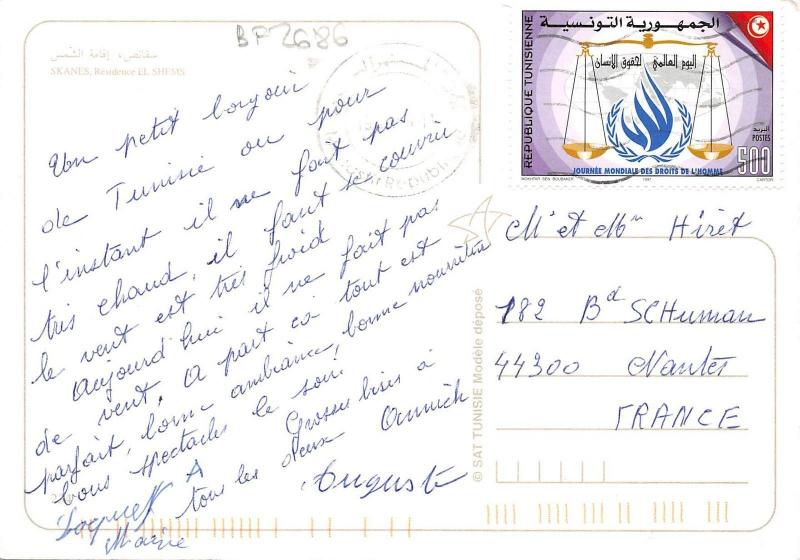 BF2686
سقانص، إقامة الشمس
SKANES, Résidence EL SHEMS
Un petit bonjour
de Tunisie ou pour
l'instant il ne fait pas
très chaud, il faut se couvrir
le vent est très froid
Aujourd'hui il ne fait pas
de vent, A part ça tout est
parfait, bonne ambiance, bonne nourriture
bons spectacles le soir!
Grosses bises à
tous les deux
Auguste
Marie
© SAT TUNISIE Modèle déposé
الجمهورية التونسية
REPUBLIQUE TUNISIENNE
اليوم العالمي لحقوق الإنسان
البريد
POSTES
500
JOURNÉE MONDIALE DES DROITS DE L'HOMME
MOKHTAR BEN BOUBAKER 1997 CARTOR
Mr et Mme Hiret
182 Bd SCHuman
44300 Nantes
FRANCE